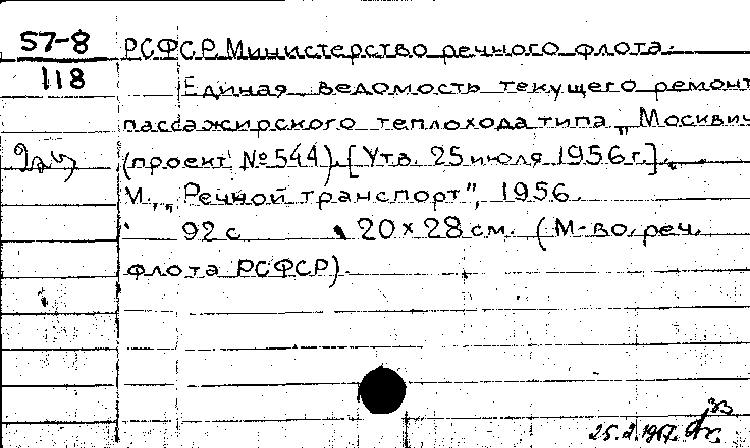 57-8
118
РСФСР. Министерство речного флота.
Единая ведомость текущего ремонт
пассажирского теплохода типа „Москвич
(проект №544). [Утв. 25 июля 1956 г.].
М., „Речной транспорт", 1956.
92 с. 20×28 см. (М-во. реч.
флота РСФСР).